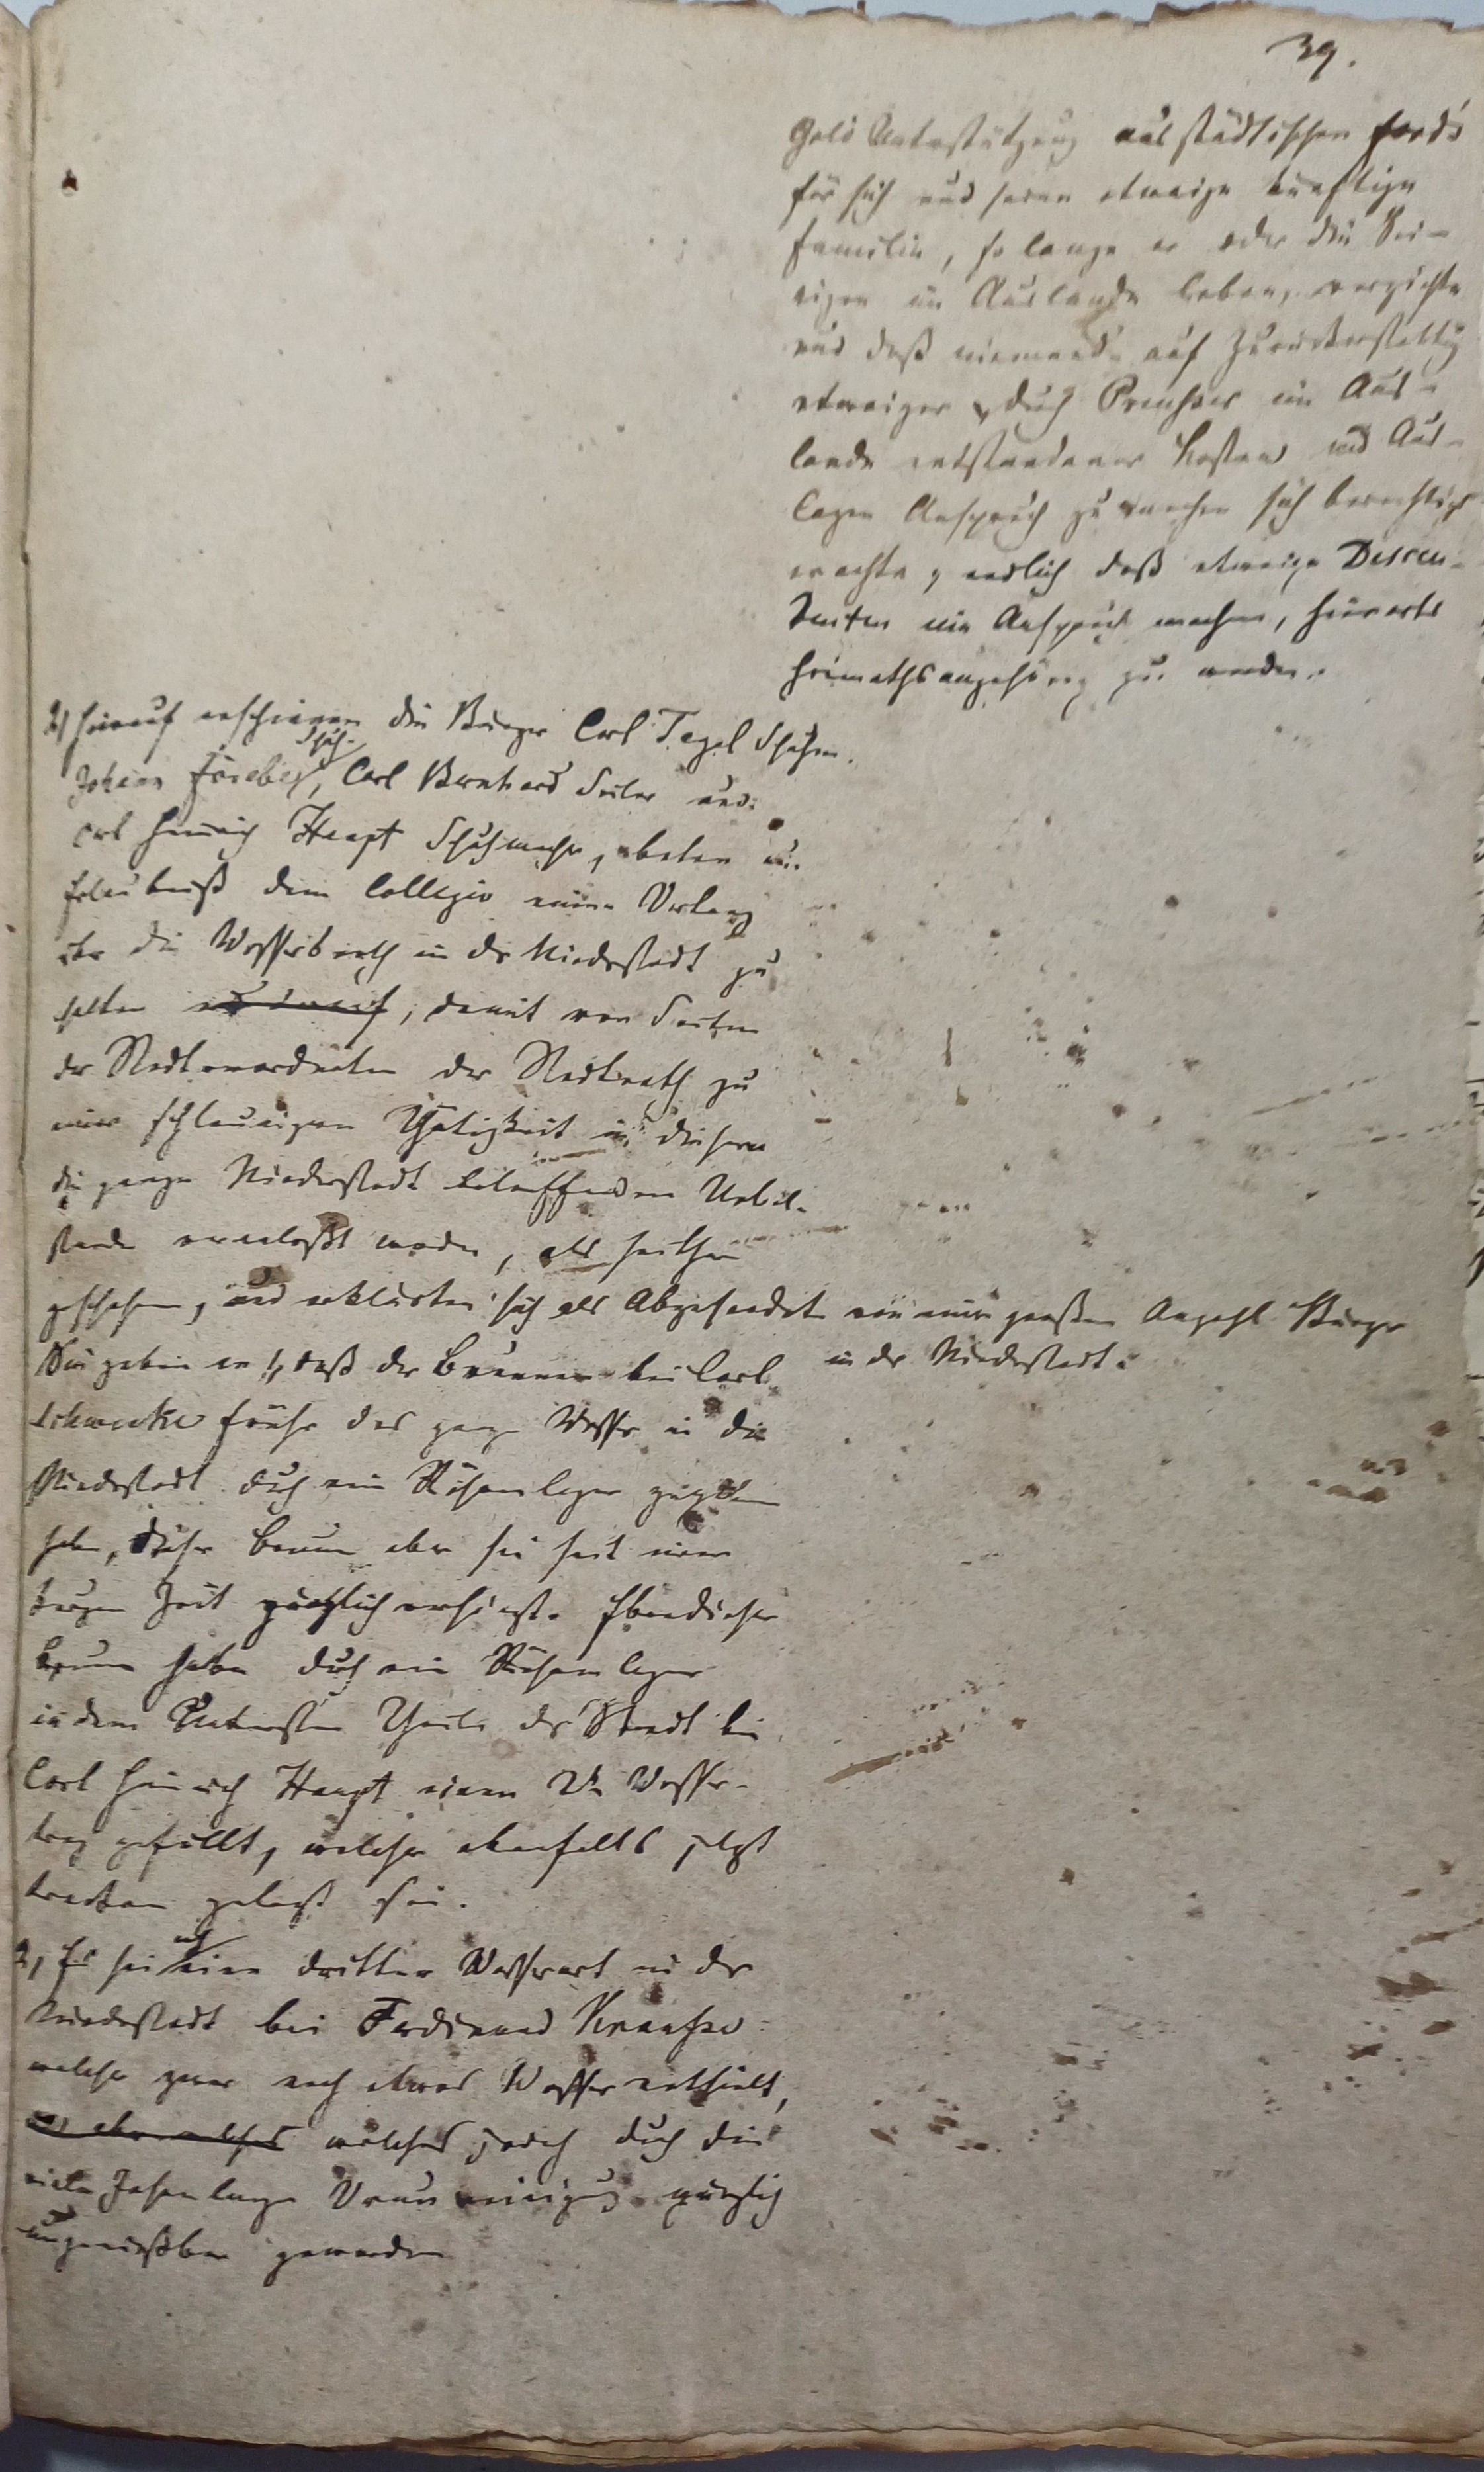 39.
Geld Unterstützung aus städtischen Fonds
für sich und seine etwaige künftige
Familie, so lange er oder die Sei-
nigen im Auslande leben, verzichte
und daß niemand auf Zurückerstattung
etwaiger durch Preußner im Aus-
lande entstandener Kosten und Aus-
lagen Anspruch zu machen sich berechtigt
erachte, endlich daß etwaige Descen-
denten nie Anspruch machen, hierorts
heimathsangehörig zu werden.
2) Hierauf erschienen die Bürger Carl Tegel Schuhm.
Johann Schuh. Carl Bernhard Seiler und
Carl Heinrich Haupt Schuhmacher, baten um
Erlaubniß dem Collegio einen Vortrag
über die Wassernoth in der Niederstadt zu
halten, damit von Seiten
der Stadtverordneten der Stadtrath zu
einer schleunigen Thätigkeit in diesem
die ganze Niederstadt betreffenden Uebel-
stande veranlaßt werde, als seither
geschehen, und erklärten sich als Abgesandte von einer großen Anzahl Bürger
in der Niederstadt.
Sie geben an 1, daß der Brunnen bei Carl
Schwenke früher das ganze Wasser in die
Niederstadt durch ein Röhrenlager gegeben
habe, dieser Brunnen aber sei seit einer
kurzen Zeit gänzlich versiegt. Ebendieser
Brunnen habe durch ein Röhrenlager
in dem Untersten Theile der Stadt bei
Carl Heinrich Haupt einen 2ten Wasser-
trog gefüllt, welcher ebenfalls jetzt
trocken gelegt sei.
2, Es sei noch ein dritter Wasserort in der
Niederstadt bei Ferdinand Krauße
welcher zwar noch etwas Wasser enthielt,
welches jedoch durch die
viele Jahre lange Verunreinigung gänzlich
ungenießbar geworden